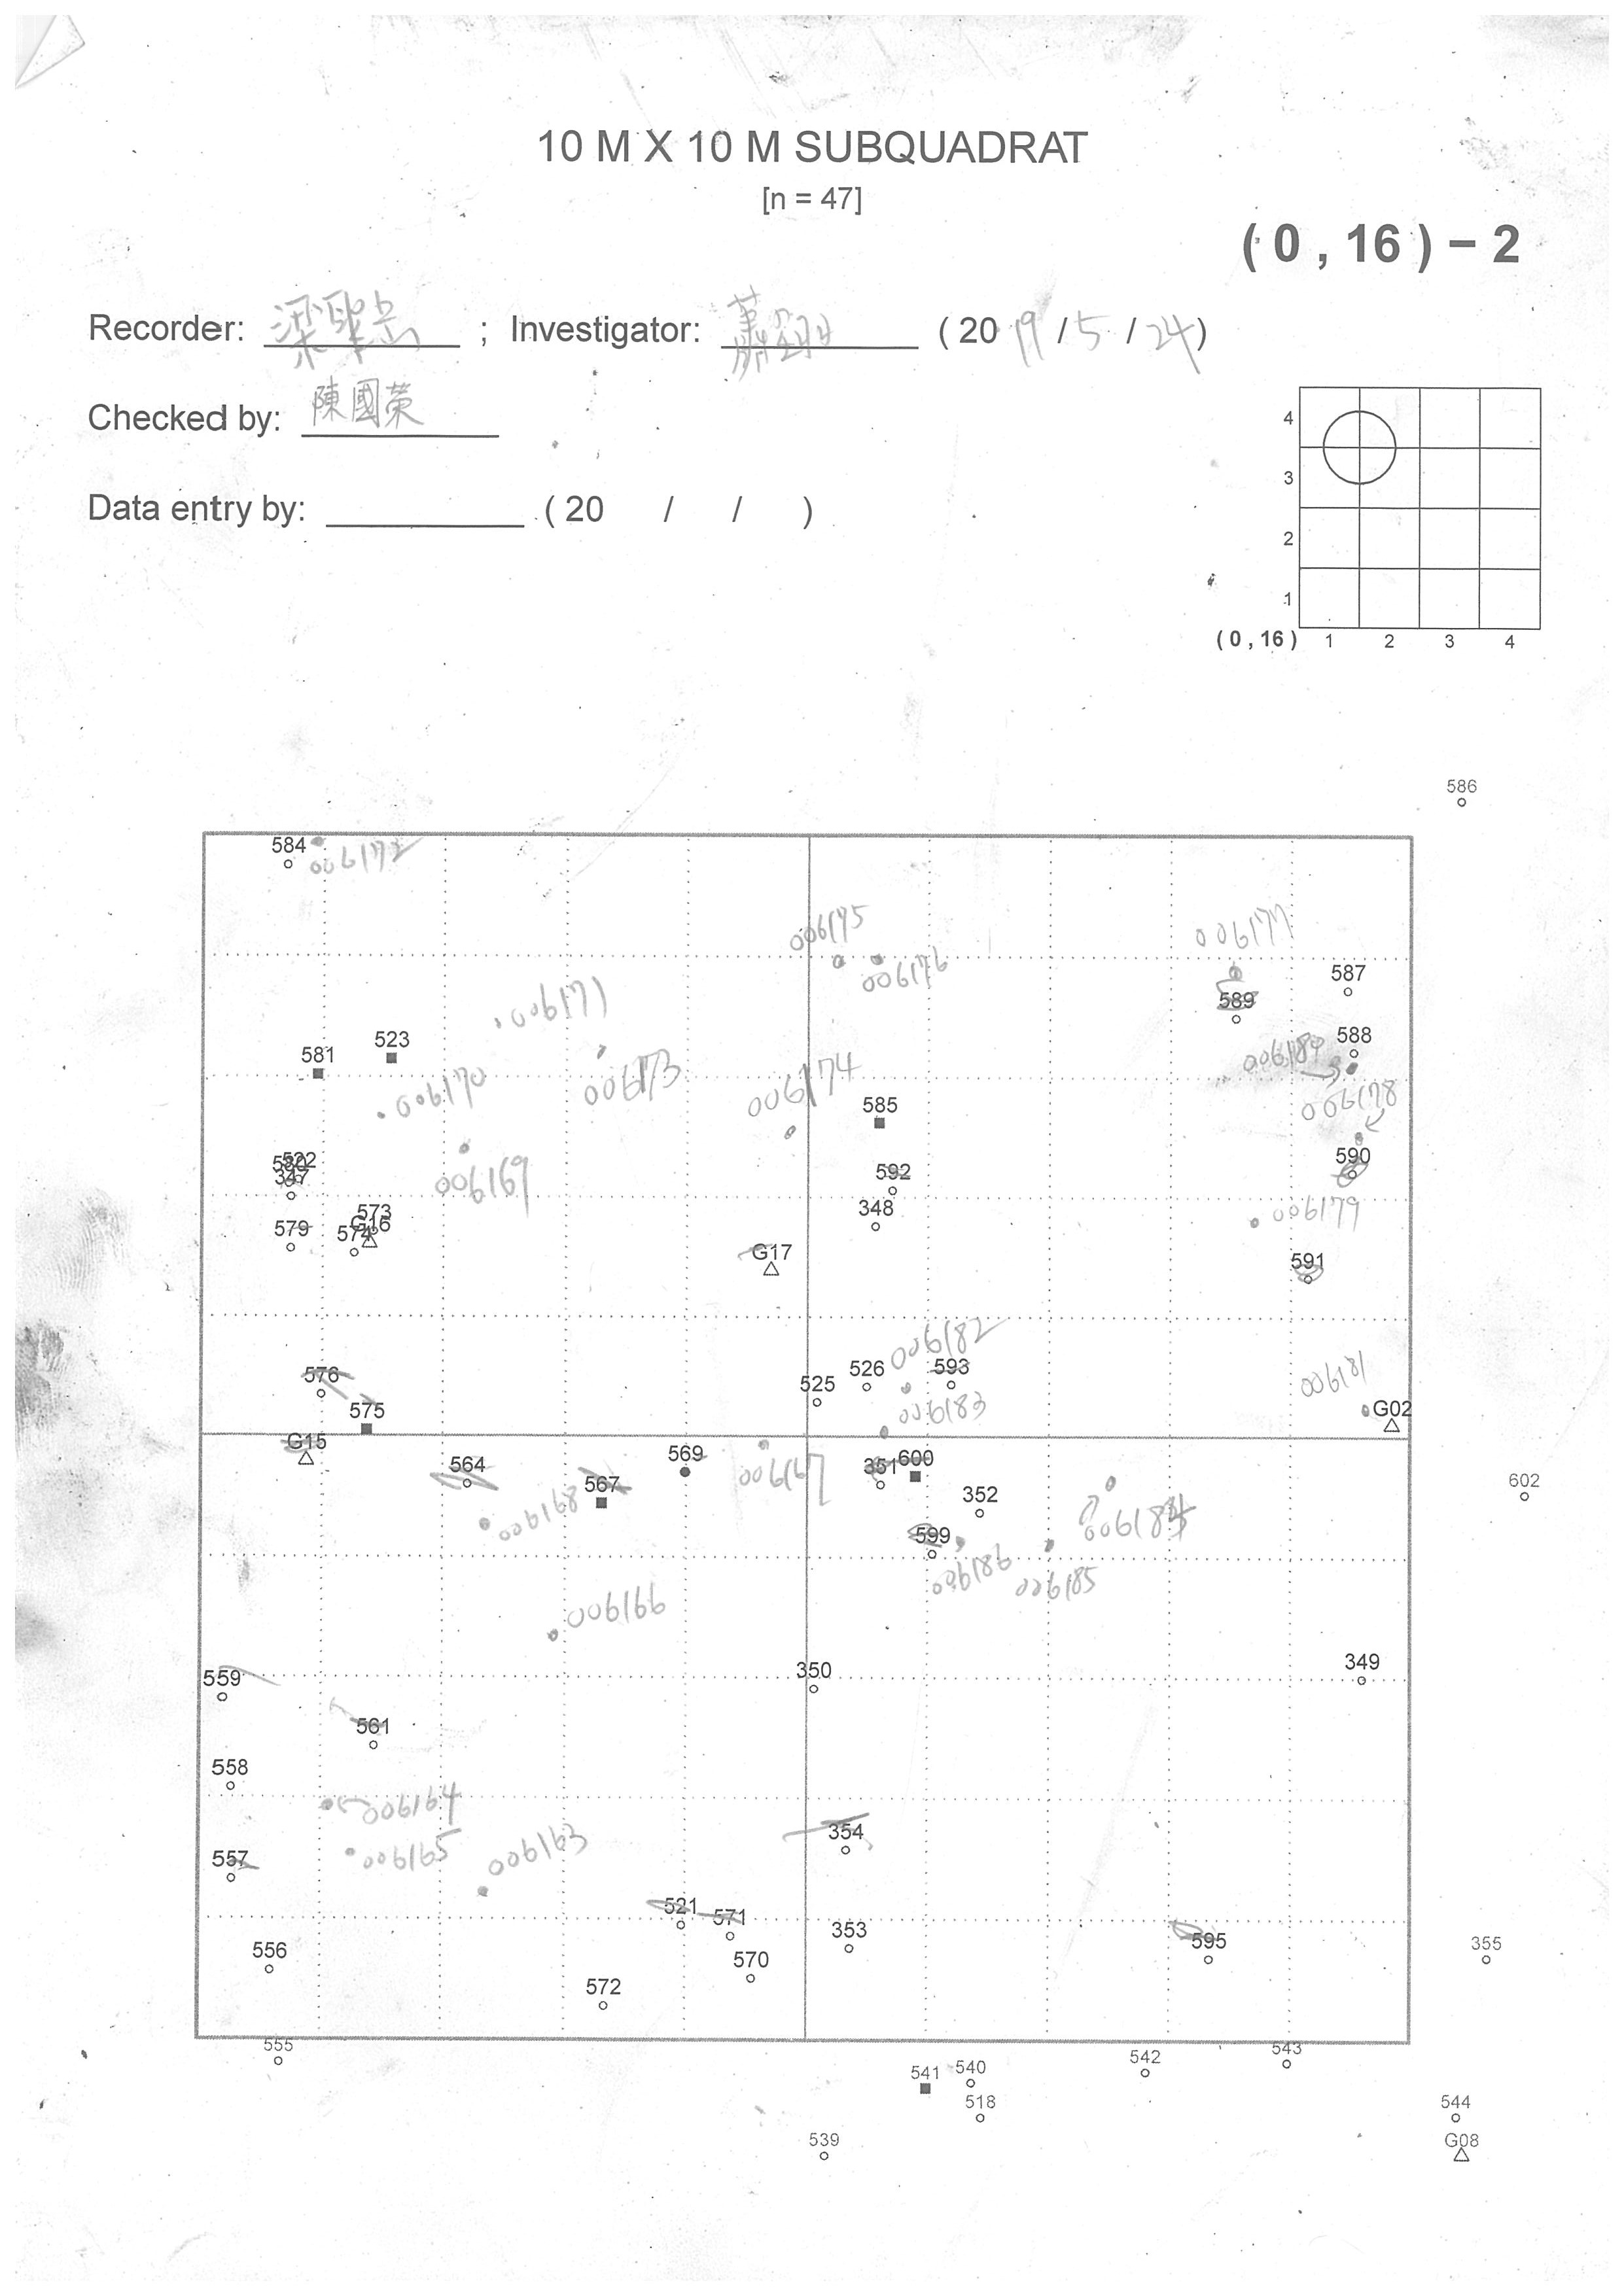 10 M X 10 M SUBQUADRAT
[n = 47]
( 0 , 16 ) − 2
Recorder: ; Investigator: ( 20 19 / 5 / 24 )
Checked by: 陳國榮
Data entry by: ( 20 / / )
4
3
2
1
( 0 , 16 ) 1 2 3 4
586
584
006172
006175
006176
006177
587
589
006171
523
581
588
006173
006170
006174
006178
585
006169
522
580
347
592
590
573
G16
579
574
348
006179
G17
591
006182
576
526
593
525
006181
575
006183
G02
G15
564
569
006167
351
600
567
352
602
006168
006184
599
006186
006185
006166
559
350
349
561
558
006164
354
006165
006163
557
521
571
353
595
355
556
570
572
555
543
542
541
540
518
544
539
G08